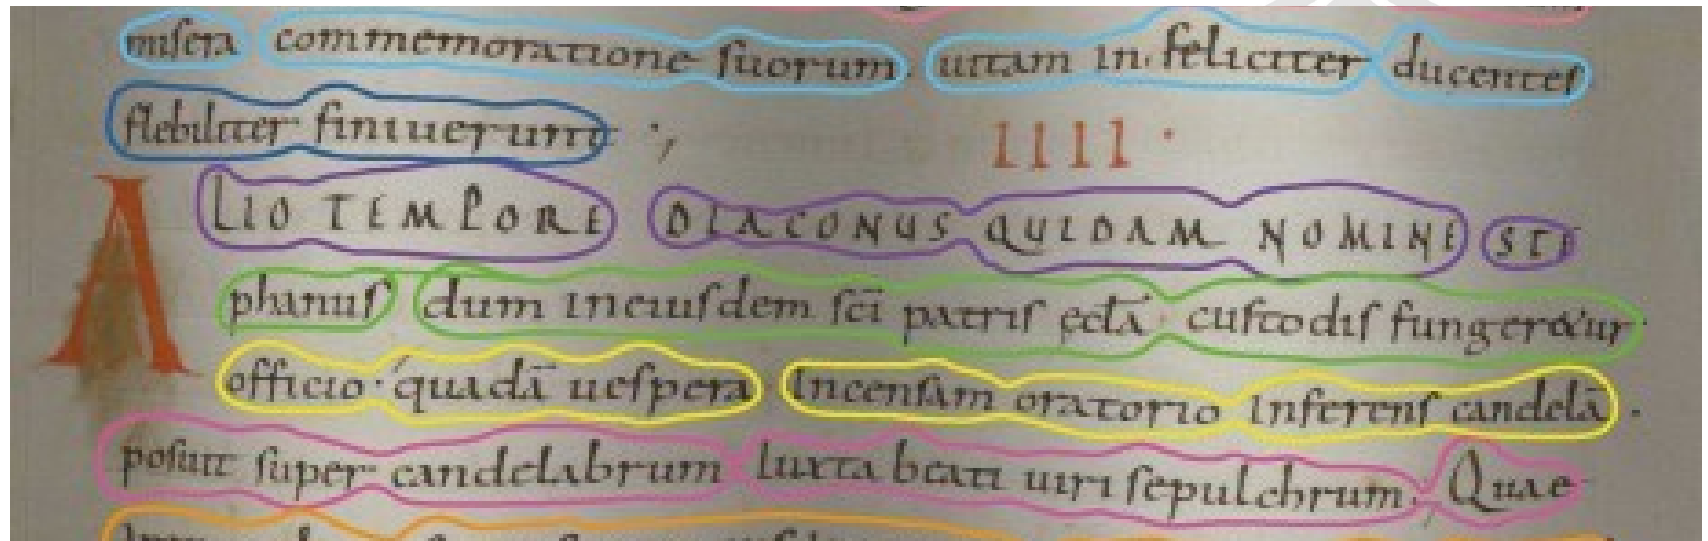 misera commemoratione suorum. uitam in. feliciter ducentes
flebiliter finiuerunt ., IIII.
ALIO TEMPORE DIACONUS QUIDAM NOMINE STE
phanus dum in eiusdem sc̄i patris ęcl̄a custodis fungeretur
officio. quadā uespera incensam oratorio inferens candelā.
posuit super candelabrum iuxta beati uiri sepulchrum. Quae